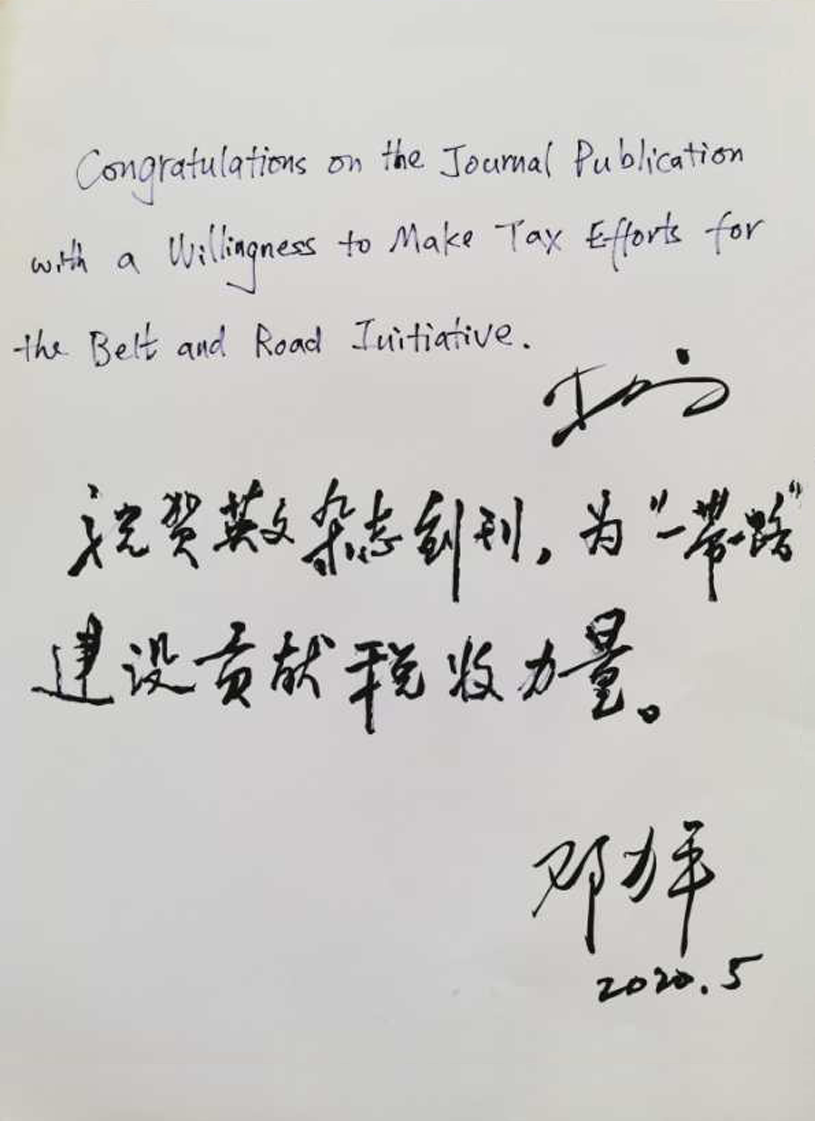 Congratulations on the Journal Publication
with a Willingness to Make Tax Efforts for
the Belt and Road Initiative.
祝贺英文杂志创刊，为“一带一路”
建设贡献税收力量。
邓力平
2020.5